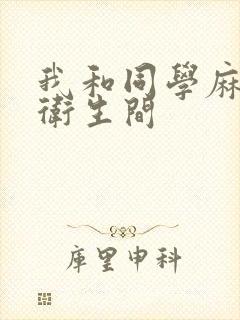 我和同學麻
衛生間
庫里申科